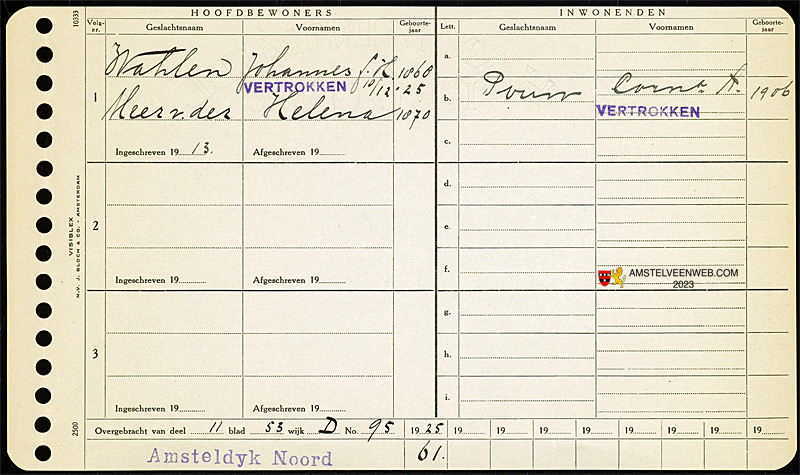 HOOFDBEWONERS INWONENDEN
10333
Volg-nr. Geslachtsnaam Voornamen Geboorte-jaar Lett. Geslachtsnaam Voornamen Geboorte-jaar
Wahlen Johannes 1868 a.
VERTROKKEN 10/12'25
1 Meer v. der Helena 1870 b. Corn.ª A. 1906
VERTROKKEN
Ingeschreven 19 13. Afgeschreven 19 c.
d.
2 e.
Ingeschreven 19 Afgeschreven 19 f.
AMSTELVEENWEB.COM
2023
g.
3 h.
Ingeschreven 19 Afgeschreven 19 i.
VISIBLEX
N.V. J. BLOCH & CO. - AMSTERDAM
2500
Overgebracht van deel 11 blad 53 wijk D No. 95 19 25 19 19 19 19 19 19 19 19
Amsteldyk Noord 61.